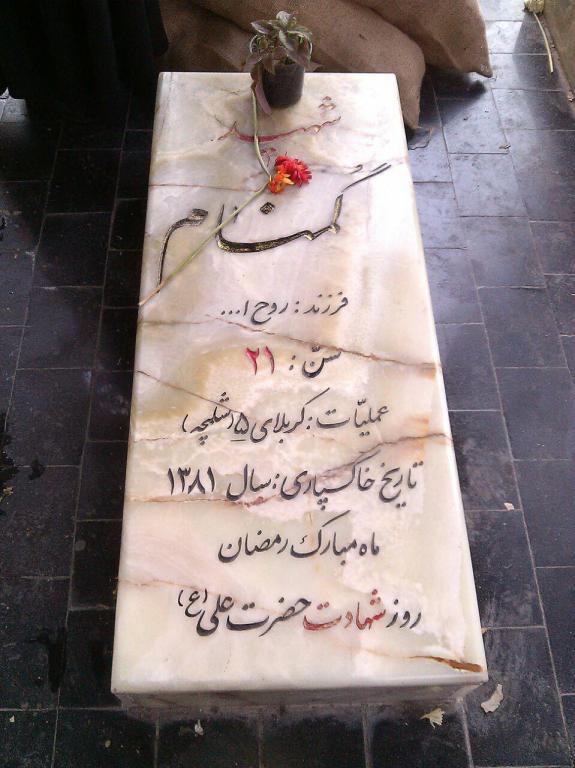 شهید
گمنام
فرزند: روح ا...
سنّ: ۲۱
عملیّات: کربلای ۵ (شلمچه)
تاریخ خاکسپاری: سال ۱۳۸۱
ماه مبارک رمضان
روز شهادت حضرت علی (ع)